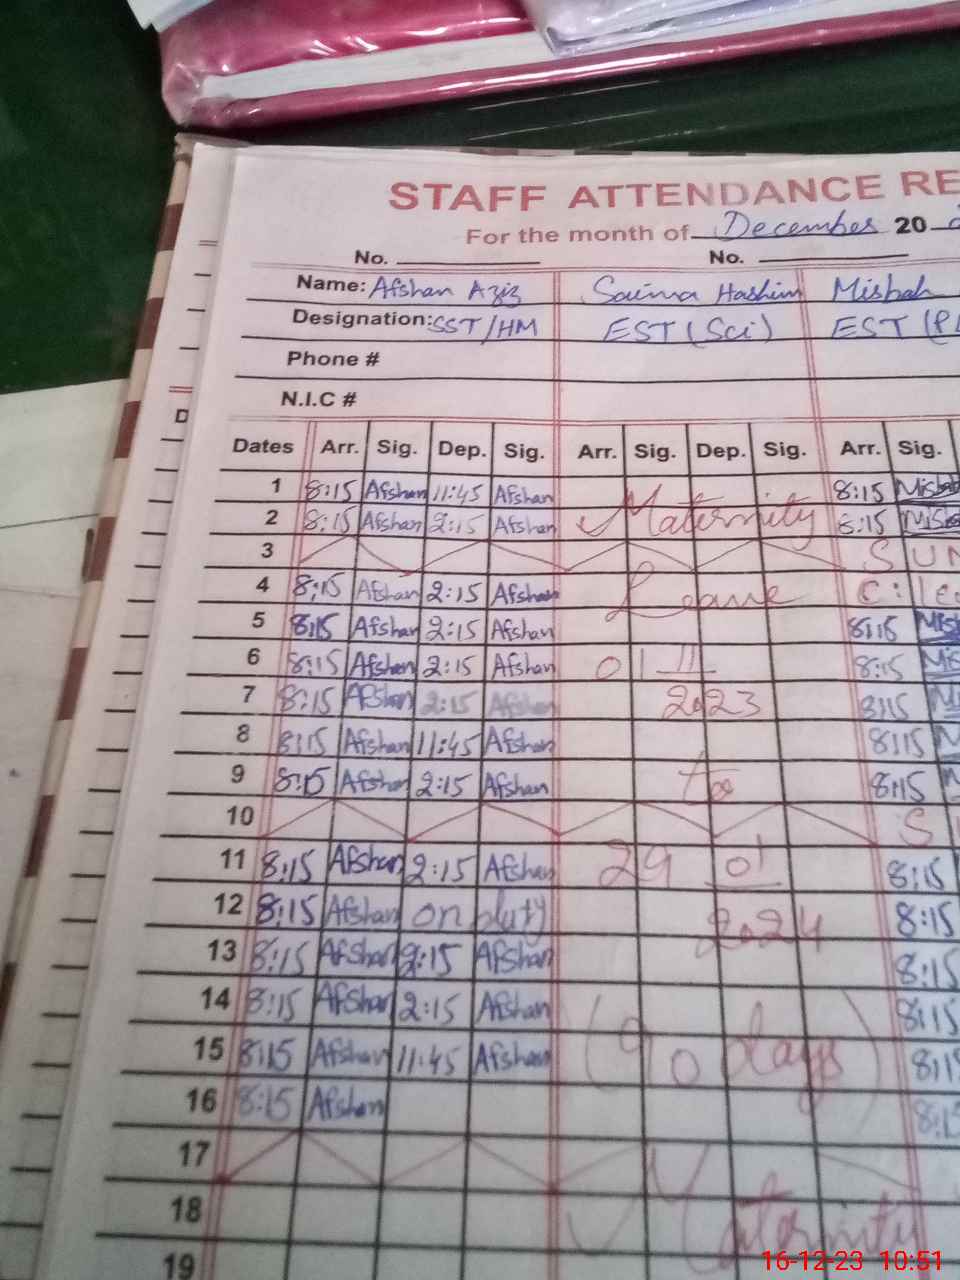 STAFF ATTENDANCE RE
For the month of December 20
No. No.
Name: Afshan Aziz Saima Hashim Misbah
Designation: SST/HM EST (Sci) EST (P
Phone #
N.I.C #
D
Dates Arr. Sig. Dep. Sig. Arr. Sig. Dep. Sig. Arr. Sig.
1 8:15 Afshan 11:45 Afshan 8:15 Misbah
2 8:15 Afshan 2:15 Afshan Maternity 8:15 Misb
3 SUN
4 8:15 Afshan 2:15 Afshan Leave C:lea
5 8:15 Afshan 2:15 Afshan 8:15 Misb
6 8:15 Afshan 2:15 Afshan 01 11 8:15 Mis
7 8:15 Afshan 2:15 Afshan 2023 8:15 Mi
8 8:15 Afshan 11:45 Afshan 8:15 M
9 8:15 Afshan 2:15 Afshan to 8:15 M
10 S
11 8:15 Afshan 2:15 Afshan 29 01 8:15
12 8:15 Afshan on Duty 2024 8:15
13 8:15 Afshan 2:15 Afshan 8:15
14 8:15 Afshan 2:15 Afshan 8:15
15 8:15 Afshan 11:45 Afshan (90 days) 8:15
16 8:15 Afshan 8:15
17
18 Maternity
19
16-12-23 10:51